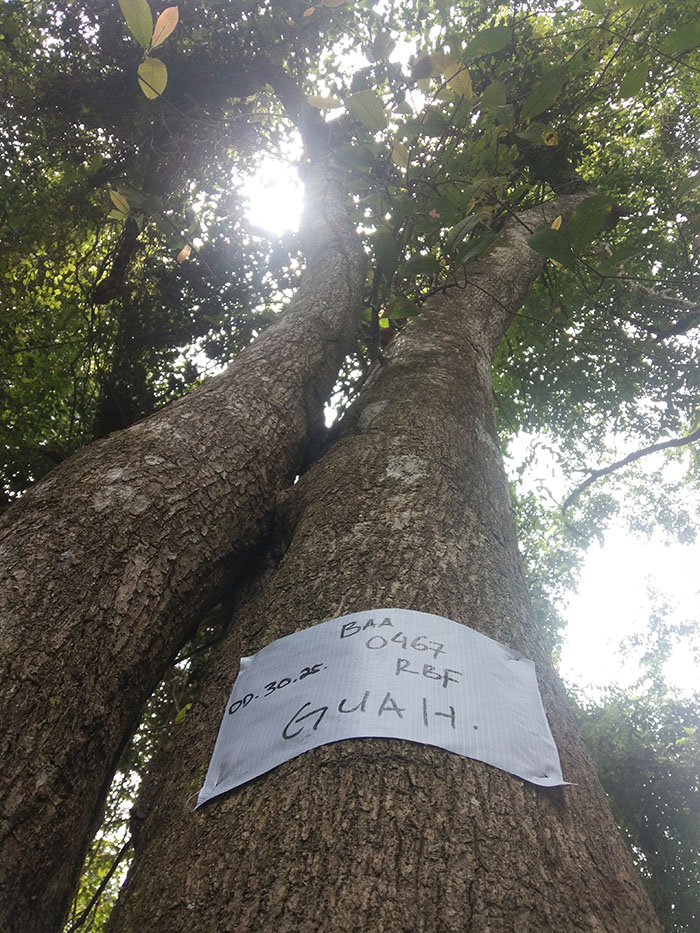 BAA
0467
RBF
OD.30.25.
GUAH.